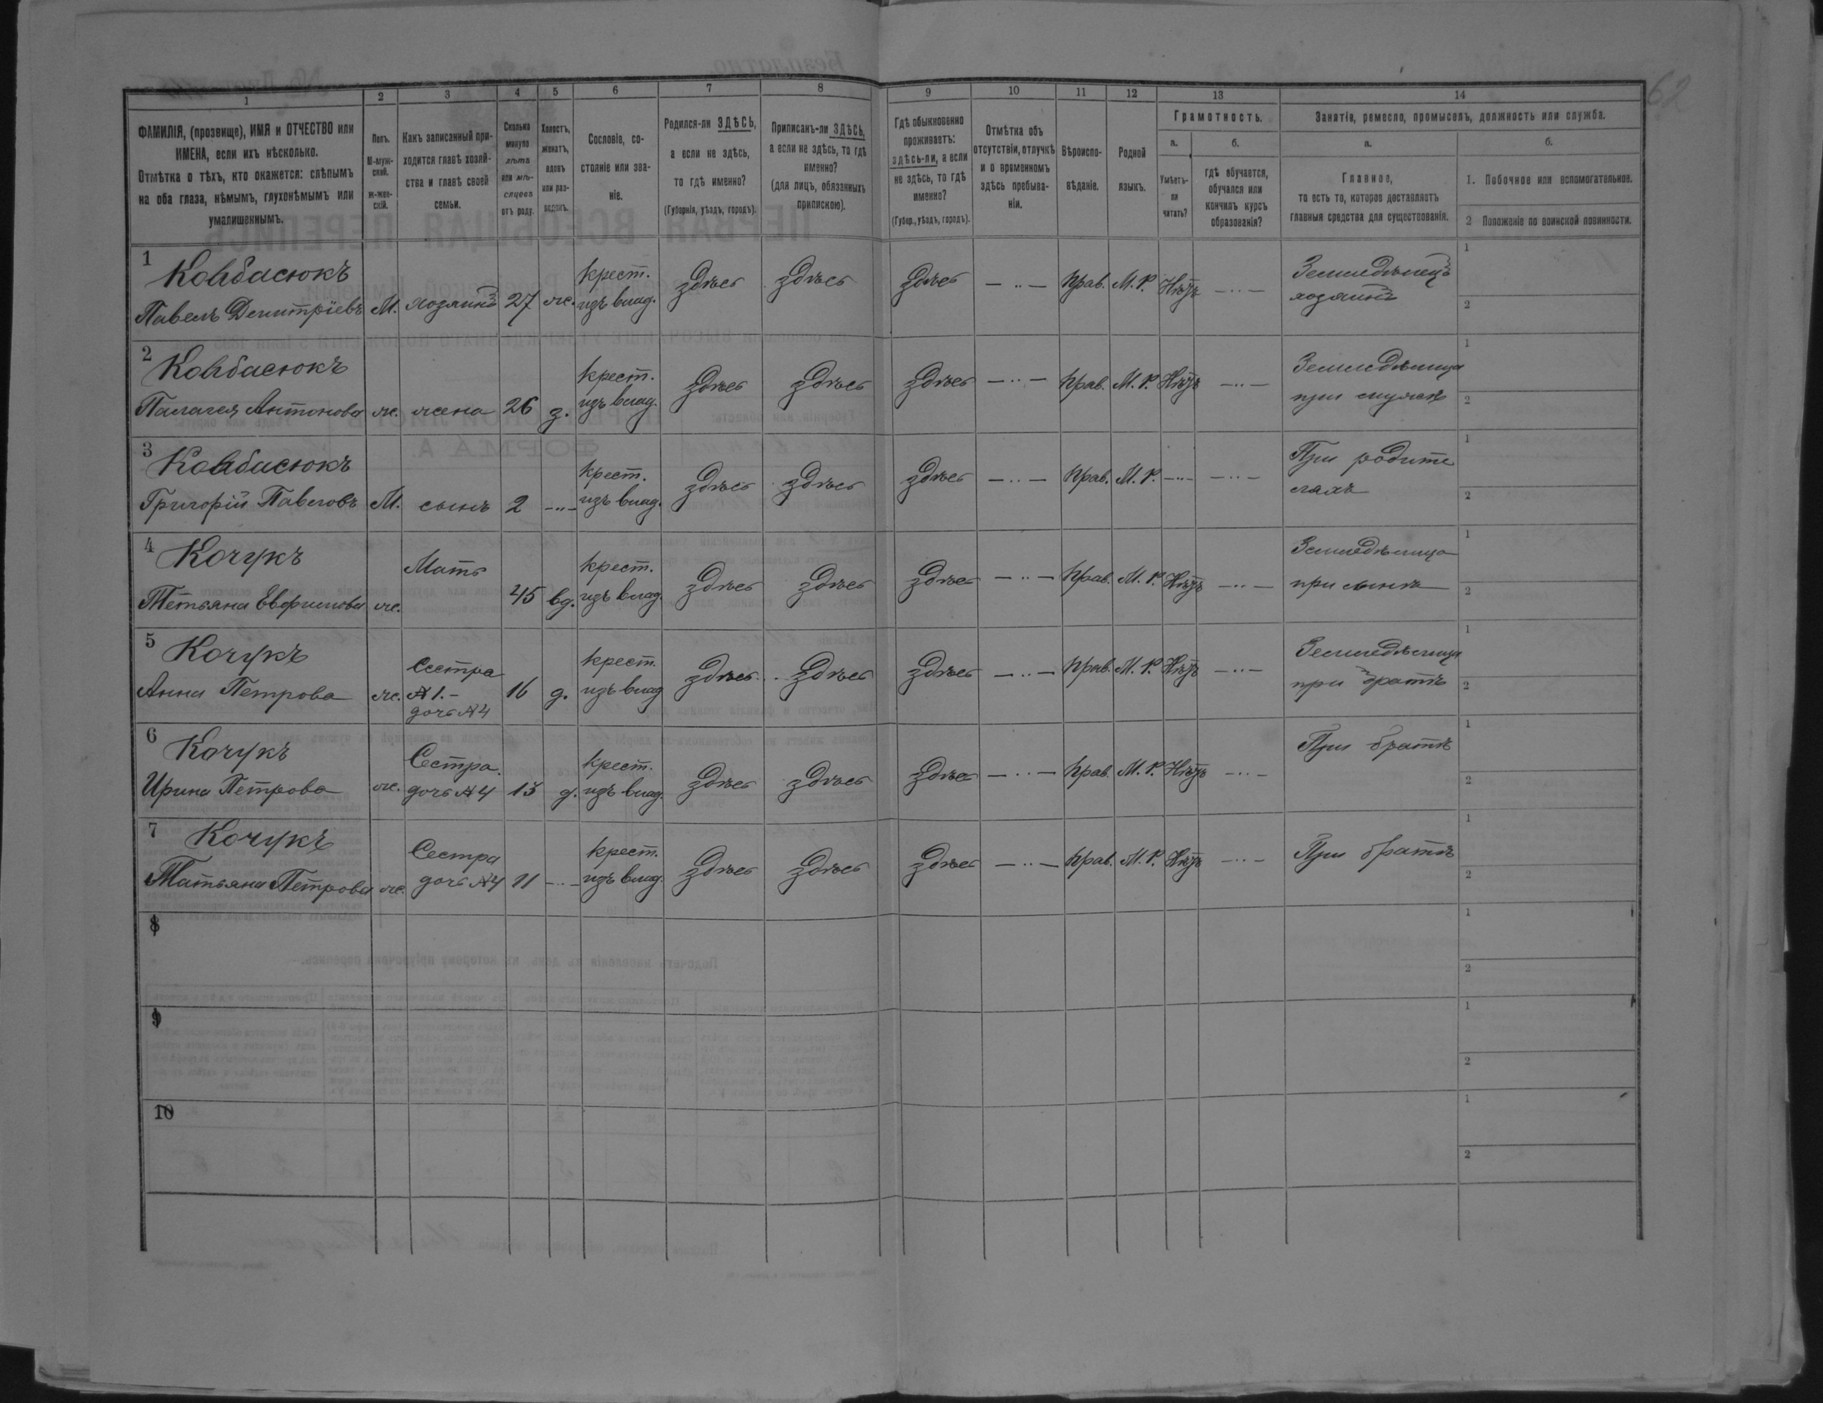 62
1 2 3 4 5 6 7 8 9 10 11 12 13 14
ФАМИЛІЯ, (прозвище), ИМЯ и ОТЧЕСТВО или
ИМЕНА, если ихъ нѣсколько.
Отмѣтка о тѣхъ, кто окажется: слѣпымъ
на оба глаза, нѣмымъ, глухонѣмымъ или
умалишеннымъ.
Полъ.
М-муж-
ской.
ж-жен-
скій.
Какъ записанный при-
ходится главѣ хозяй-
ства и главѣ своей
семьи.
Сколько
минуло
лѣтъ
или мѣ-
сяцевъ
отъ роду.
Холостъ,
женатъ,
вдовъ
или раз-
веденъ.
Сословіе, со-
стояніе или зва-
ніе.
Родился-ли ЗДѢСЬ,
а если не здѣсь,
то гдѣ именно?
(Губернія, уѣздъ, городъ).
Приписанъ-ли ЗДѢСЬ,
а если не здѣсь, то гдѣ
именно?
(для лицъ, обязанныхъ
припискою).
Гдѣ обыкновенно
проживаетъ:
здѣсь-ли, а если
не здѣсь, то гдѣ
именно?
(Губер., уѣздъ, городъ).
Отмѣтка объ
отсутствіи, отлучкѣ
и о временномъ
здѣсь пребыва-
ніи.
Вѣроиспо-
вѣданіе.
Родной
языкъ.
Грамотность.
а.
Умѣетъ-
ли
читать?
б.
гдѣ обучается,
обучался или
кончилъ курсъ
образованія?
Занятіе, ремесло, промыселъ, должность или служба.
а.
Главное,
то есть то, которое доставляетъ
главныя средства для существованія.
б.
1. Побочное или вспомогательное.
2 Положеніе по воинской повинности.
1 Ковбасюкъ
Павелъ Дмитріевъ М. хозяинъ 27 ж. крест. изъ влад. здѣсь здѣсь здѣсь — .. — прав. М.Р. Нѣтъ — .. — Земледѣлецъ
хозяинъ
1
2
2 Ковбасюкъ
Палагея Антонова ж. жена 26 з. крест. изъ влад. здѣсь здѣсь здѣсь — .. — прав. М.Р. Нѣтъ — .. — Земледѣлица
при мужѣ
1
2
3 Ковбасюкъ
Григорій Павловъ М. сынъ 2 — .. — крест. изъ влад. здѣсь здѣсь здѣсь — .. — прав. М.Р. — .. — — .. — При родите
ляхъ
1
2
4 Кочукъ
Тетьяна ж. Мать 45 вд. крест. изъ влад. здѣсь здѣсь здѣсь — .. — прав. М.Р. Нѣтъ — .. — Земледѣлица
при сынѣ
1
2
5 Кочукъ
Анна Петрова ж. Сестра
№1.-
дочь №4 16 д. крест. изъ влад здѣсь здѣсь здѣсь — .. — прав. М.Р. Нѣтъ — .. — Земледѣлица
при братѣ
1
2
6 Кочукъ
Ирина Петрова ж. Сестра.
дочь №4 13 д. крест. изъ влад. здѣсь здѣсь здѣсь — .. — прав. М.Р. Нѣтъ — .. — При братѣ
1
2
7 Кочукъ
Татьяна Петрова ж. Сестра
дочь №4 11 — .. — крест. изъ влад. здѣсь здѣсь здѣсь — .. — прав. М.Р. Нѣтъ — .. — При братѣ
1
2
8
1
2
9
1
2
10
1
2